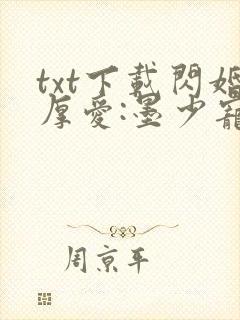 txt下載閃婚
厚愛:墨少寵
周京平